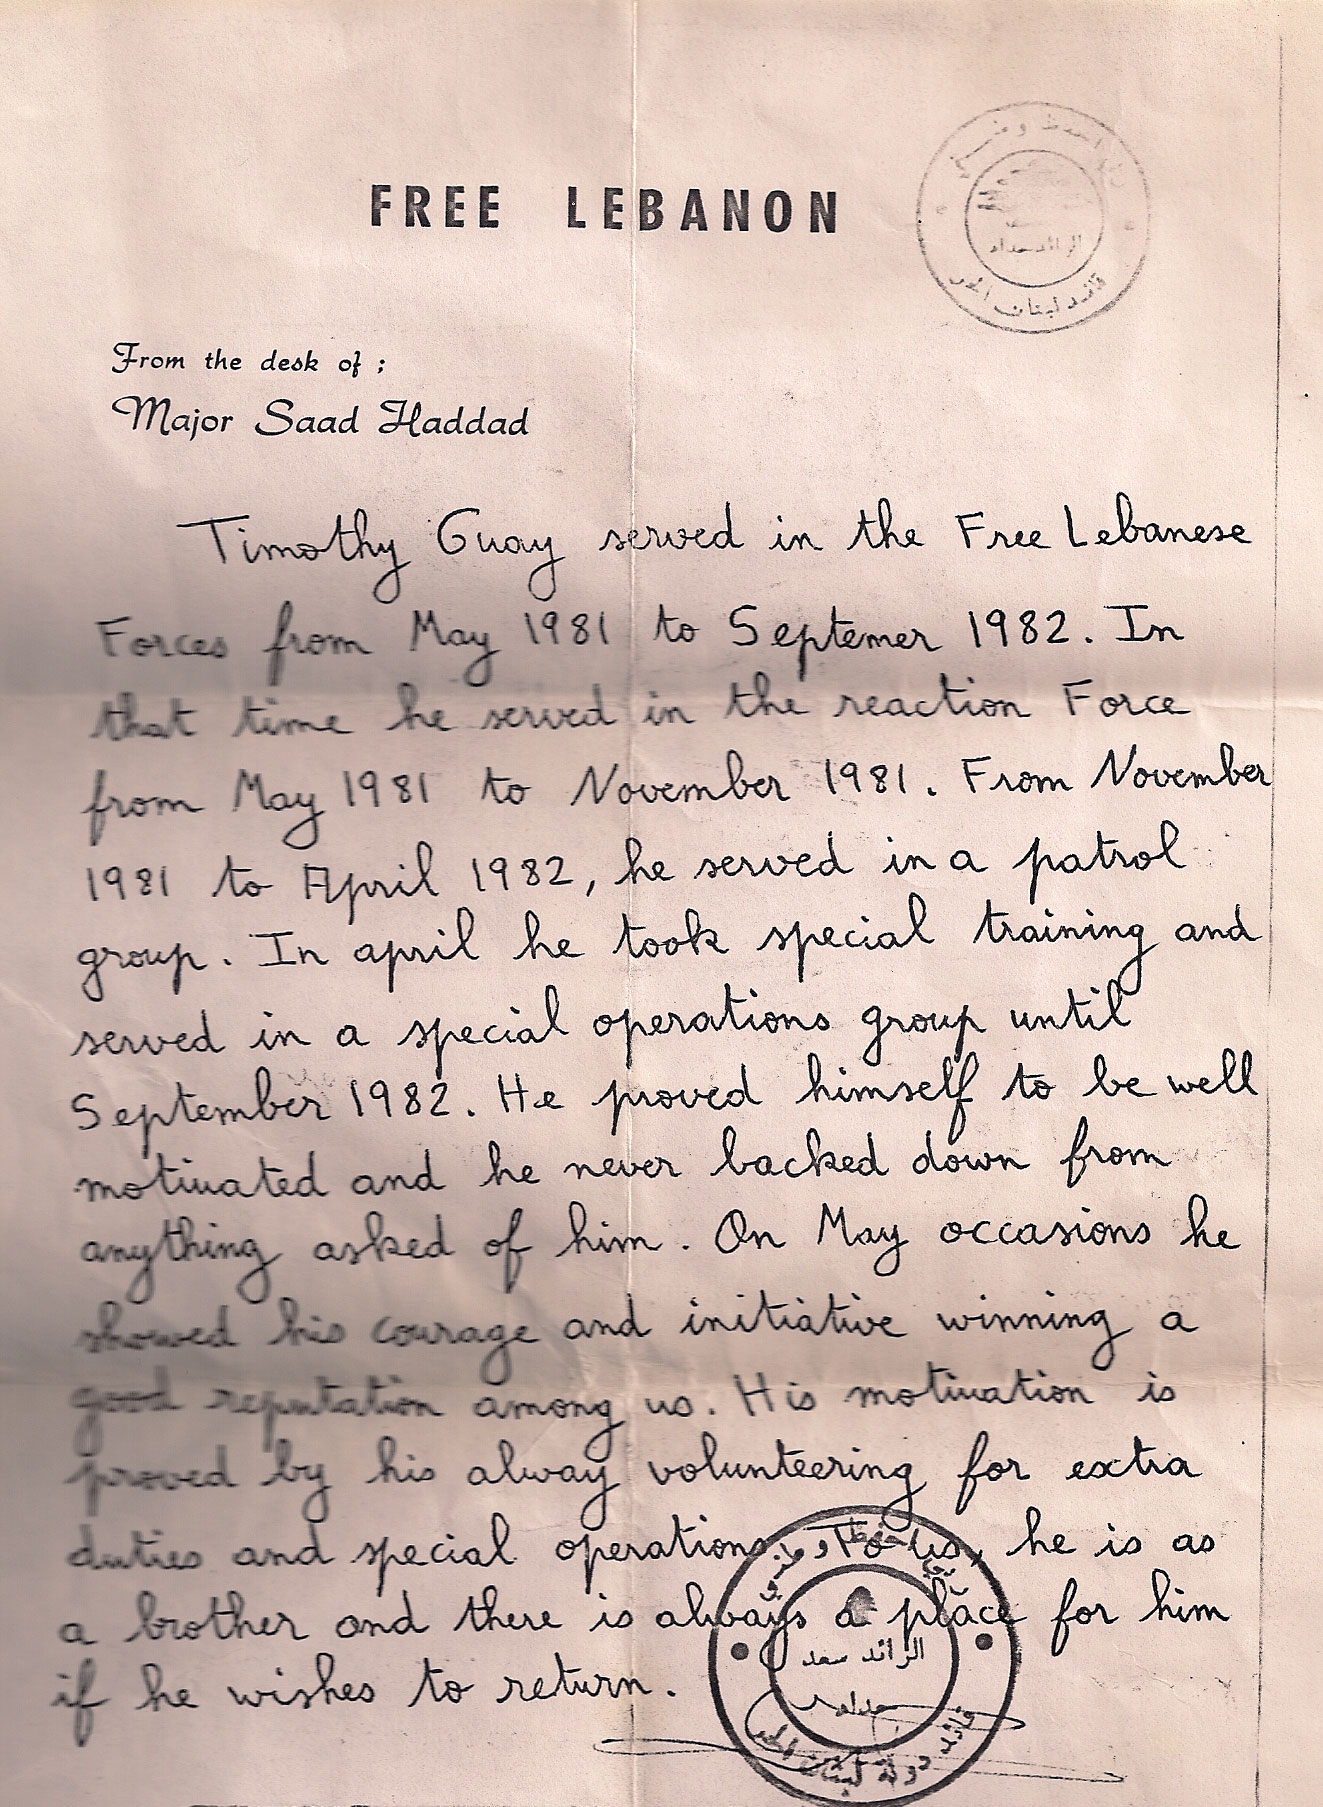 FREE LEBANON
الرائد حداد
قائد لبنان الحر
From the desk of ;
Major Saad Haddad
Timothy Guay served in the Free Lebanese
Forces from May 1981 to Septemer 1982. In
that time he served in the reaction Force
from May 1981 to November 1981. From November
1981 to April 1982, he served in a patrol
group. In april he took special training and
served in a special operations group until
September 1982. He proved himself to be well
motivated and he never backed down from
anything asked of him. On May occasions he
showed his courage and initiative winning a
good reputation among us. His motivation is
proved by his alway volunteering for extra
duties and special operations. To us, he is as
a brother and there is always a place for him
if he wishes to return.
الرائد سعد
حداد
قائد دولة لبنان الحر